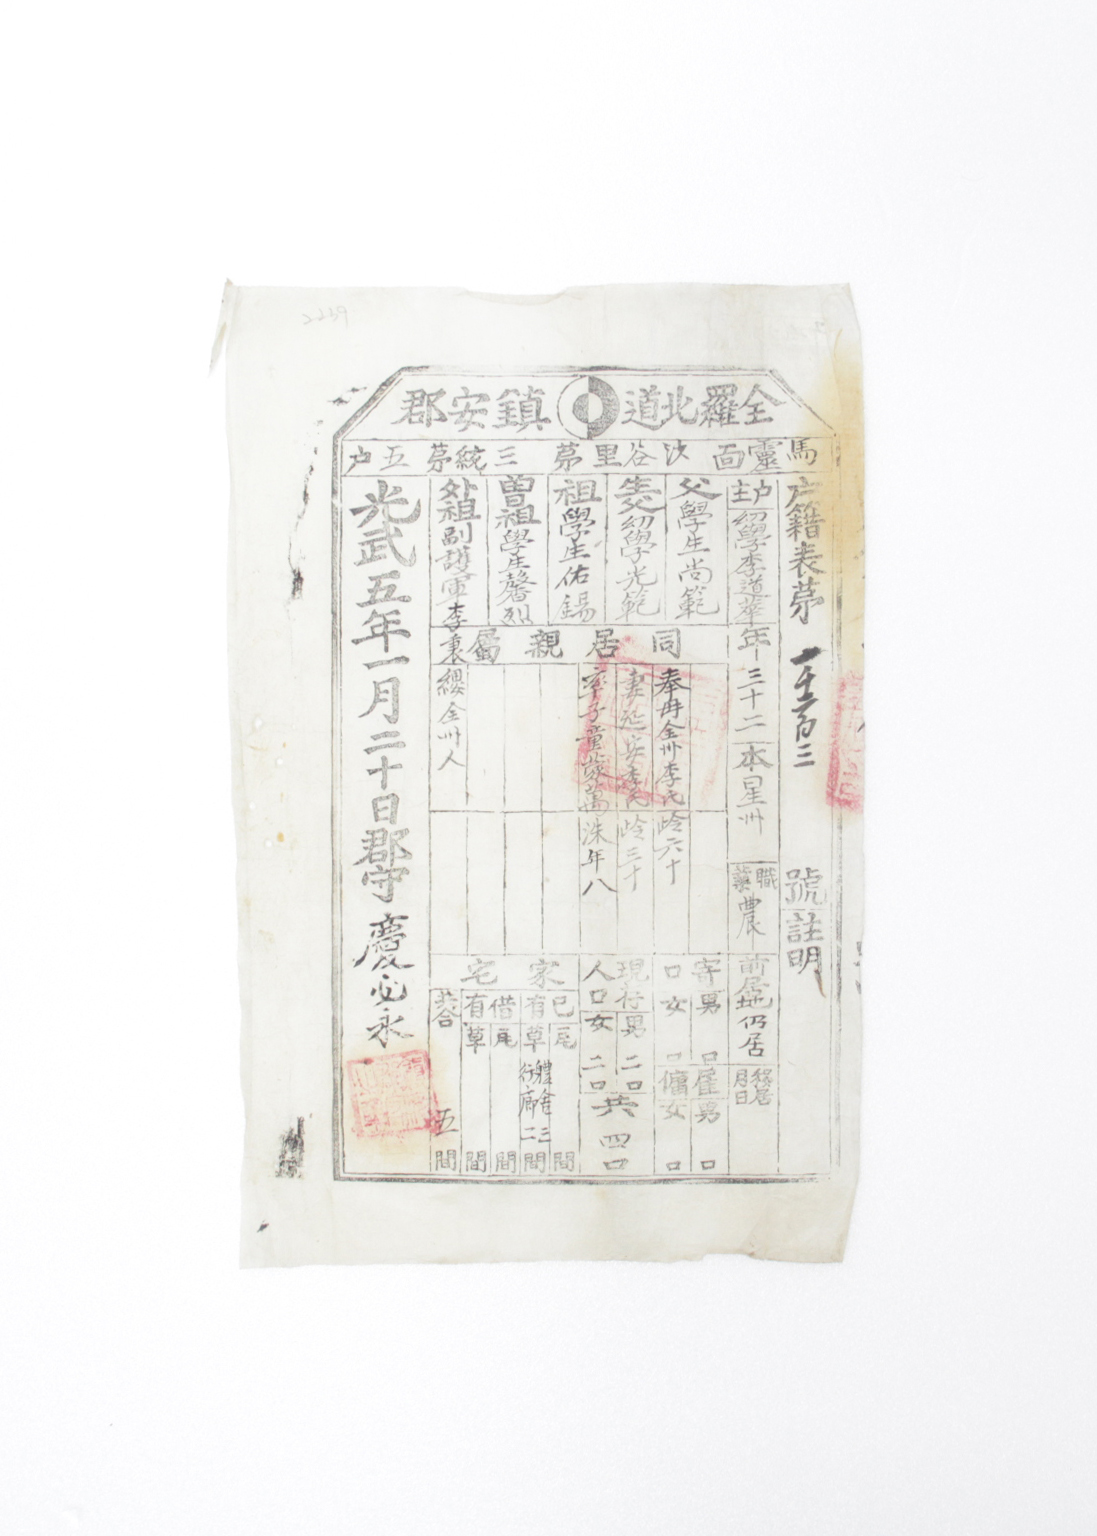 2239
全羅北道 鎭安郡
馬靈面 沙谷里 第三統 第五戶
戶籍表第 一千二百三 號 註明
戶主 幼學李道華 年三十二 本星州 職業 農 前居地 仍居 移居月日
父 學生尚範
生父 幼學光範
祖 學生佑錫
曾祖 學生馨烈
外祖 副護軍李裏纓全州人
同居親屬
奉母全州李氏 齡六十
妻延安李氏 齡三十
率子童蒙萬洙 年八
寄 男 口 女 口
雇男 口 傭女 口
現存 男 二口
人口 女 二口
共 四口
家宅
已有 瓦 間 草 體舍三 行廊二 間
借有 瓦 間 草 間
共合 五 間
光武五年一月二十日郡守 慶必永